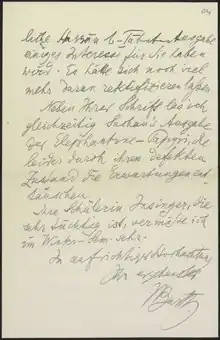 einiges Interesse für Sie haben
wird. Es hätte sich noch viel
mehr daran rektifizieren lassen.
Neben Ihrer Schrift las ich
gleichzeitig Sachaus Ausgabe
der Elephantine-Papyri, die
leider durch ihren defekten
Zustand die Erwartungen ent-
täuschen.
Ihre Schülerin Insinger, die
sehr tüchtig ist, vermisse ich
im Winter-Sem. sehr.
In aufrichtiger Hochachtung
Ihr ergebenster